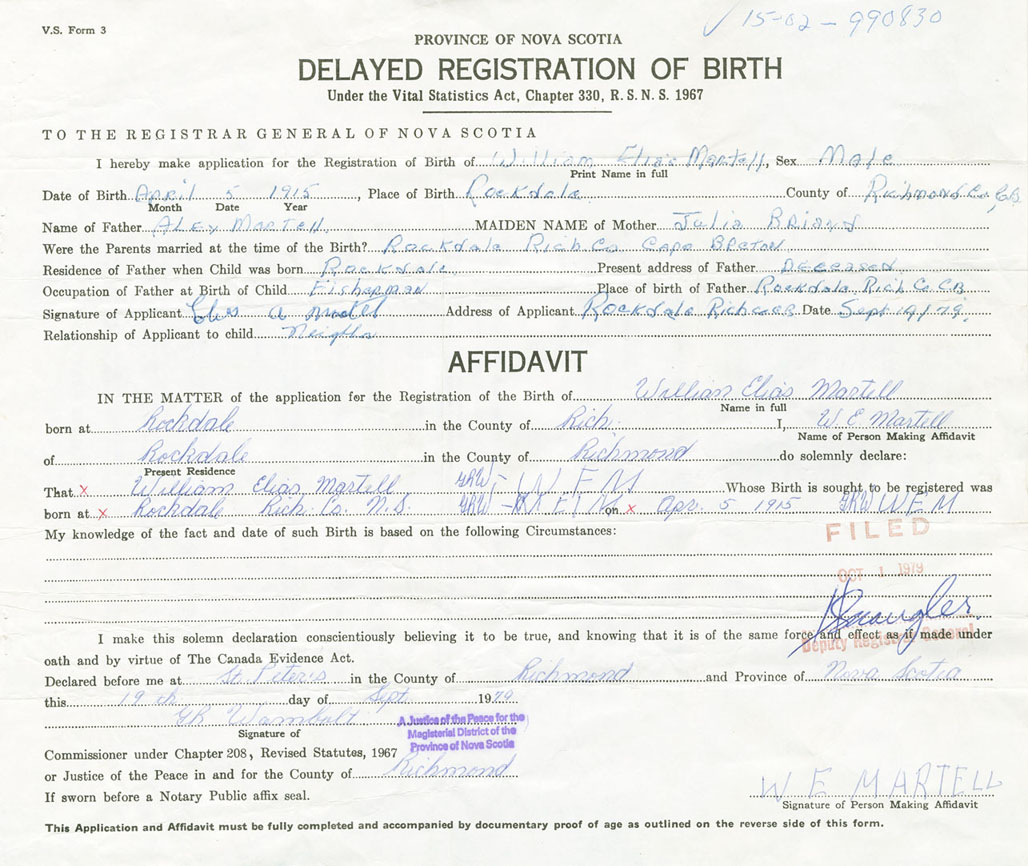 V.S. Form 3
✓ 15-02-990830
PROVINCE OF NOVA SCOTIA
DELAYED REGISTRATION OF BIRTH
Under the Vital Statistics Act, Chapter 330, R.S.N.S. 1967
TO THE REGISTRAR GENERAL OF NOVA SCOTIA
I hereby make application for the Registration of Birth of William Elias Martell, Sex Male
Print Name in full
Date of Birth April 5 1915, Place of Birth Rockdale County of Richmond Co, C.B.
Month Date Year
Name of Father ALEX MARTELL MAIDEN NAME of Mother Julia BRIAND
Were the Parents married at the time of the Birth? Rockdale Rich Co Cape BRETON
Residence of Father when Child was born Rockdale Present address of Father
Occupation of Father at Birth of Child Fisherman Place of birth of Father Rockdale Rich Co C.B.
Signature of Applicant Address of Applicant Rockdale Rich Co C.B. Date Sept 19/79.
Relationship of Applicant to child
AFFIDAVIT
IN THE MATTER of the application for the Registration of the Birth of William Elias Martell
Name in full
born at Rockdale in the County of Rich. I, W. E. Martell
Name of Person Making Affidavit
of Rockdale in the County of Richmond do solemnly declare:
Present Residence
That x William Elias Martell GRW, W E M Whose Birth is sought to be registered was
born at x Rockdale Rich. Co. N.S. GRW on x Apr. 5 1915 GRW W E M
My knowledge of the fact and date of such Birth is based on the following Circumstances:
FILED
OCT 1 1979
I make this solemn declaration conscientiously believing it to be true, and knowing that it is of the same force and effect as if made under
Deputy Registrar General
oath and by virtue of The Canada Evidence Act.
Declared before me at St. Peter's in the County of Richmond and Province of Nova Scotia
this 19th day of Sept 1979
GR Wambolt
A Justice of the Peace for the
Magisterial District of the
Province of Nova Scotia
Signature of
Commissioner under Chapter 208, Revised Statutes, 1967
or Justice of the Peace in and for the County of Richmond
If sworn before a Notary Public affix seal.
W E MARTELL
Signature of Person Making Affidavit
This Application and Affidavit must be fully completed and accompanied by documentary proof of age as outlined on the reverse side of this form.